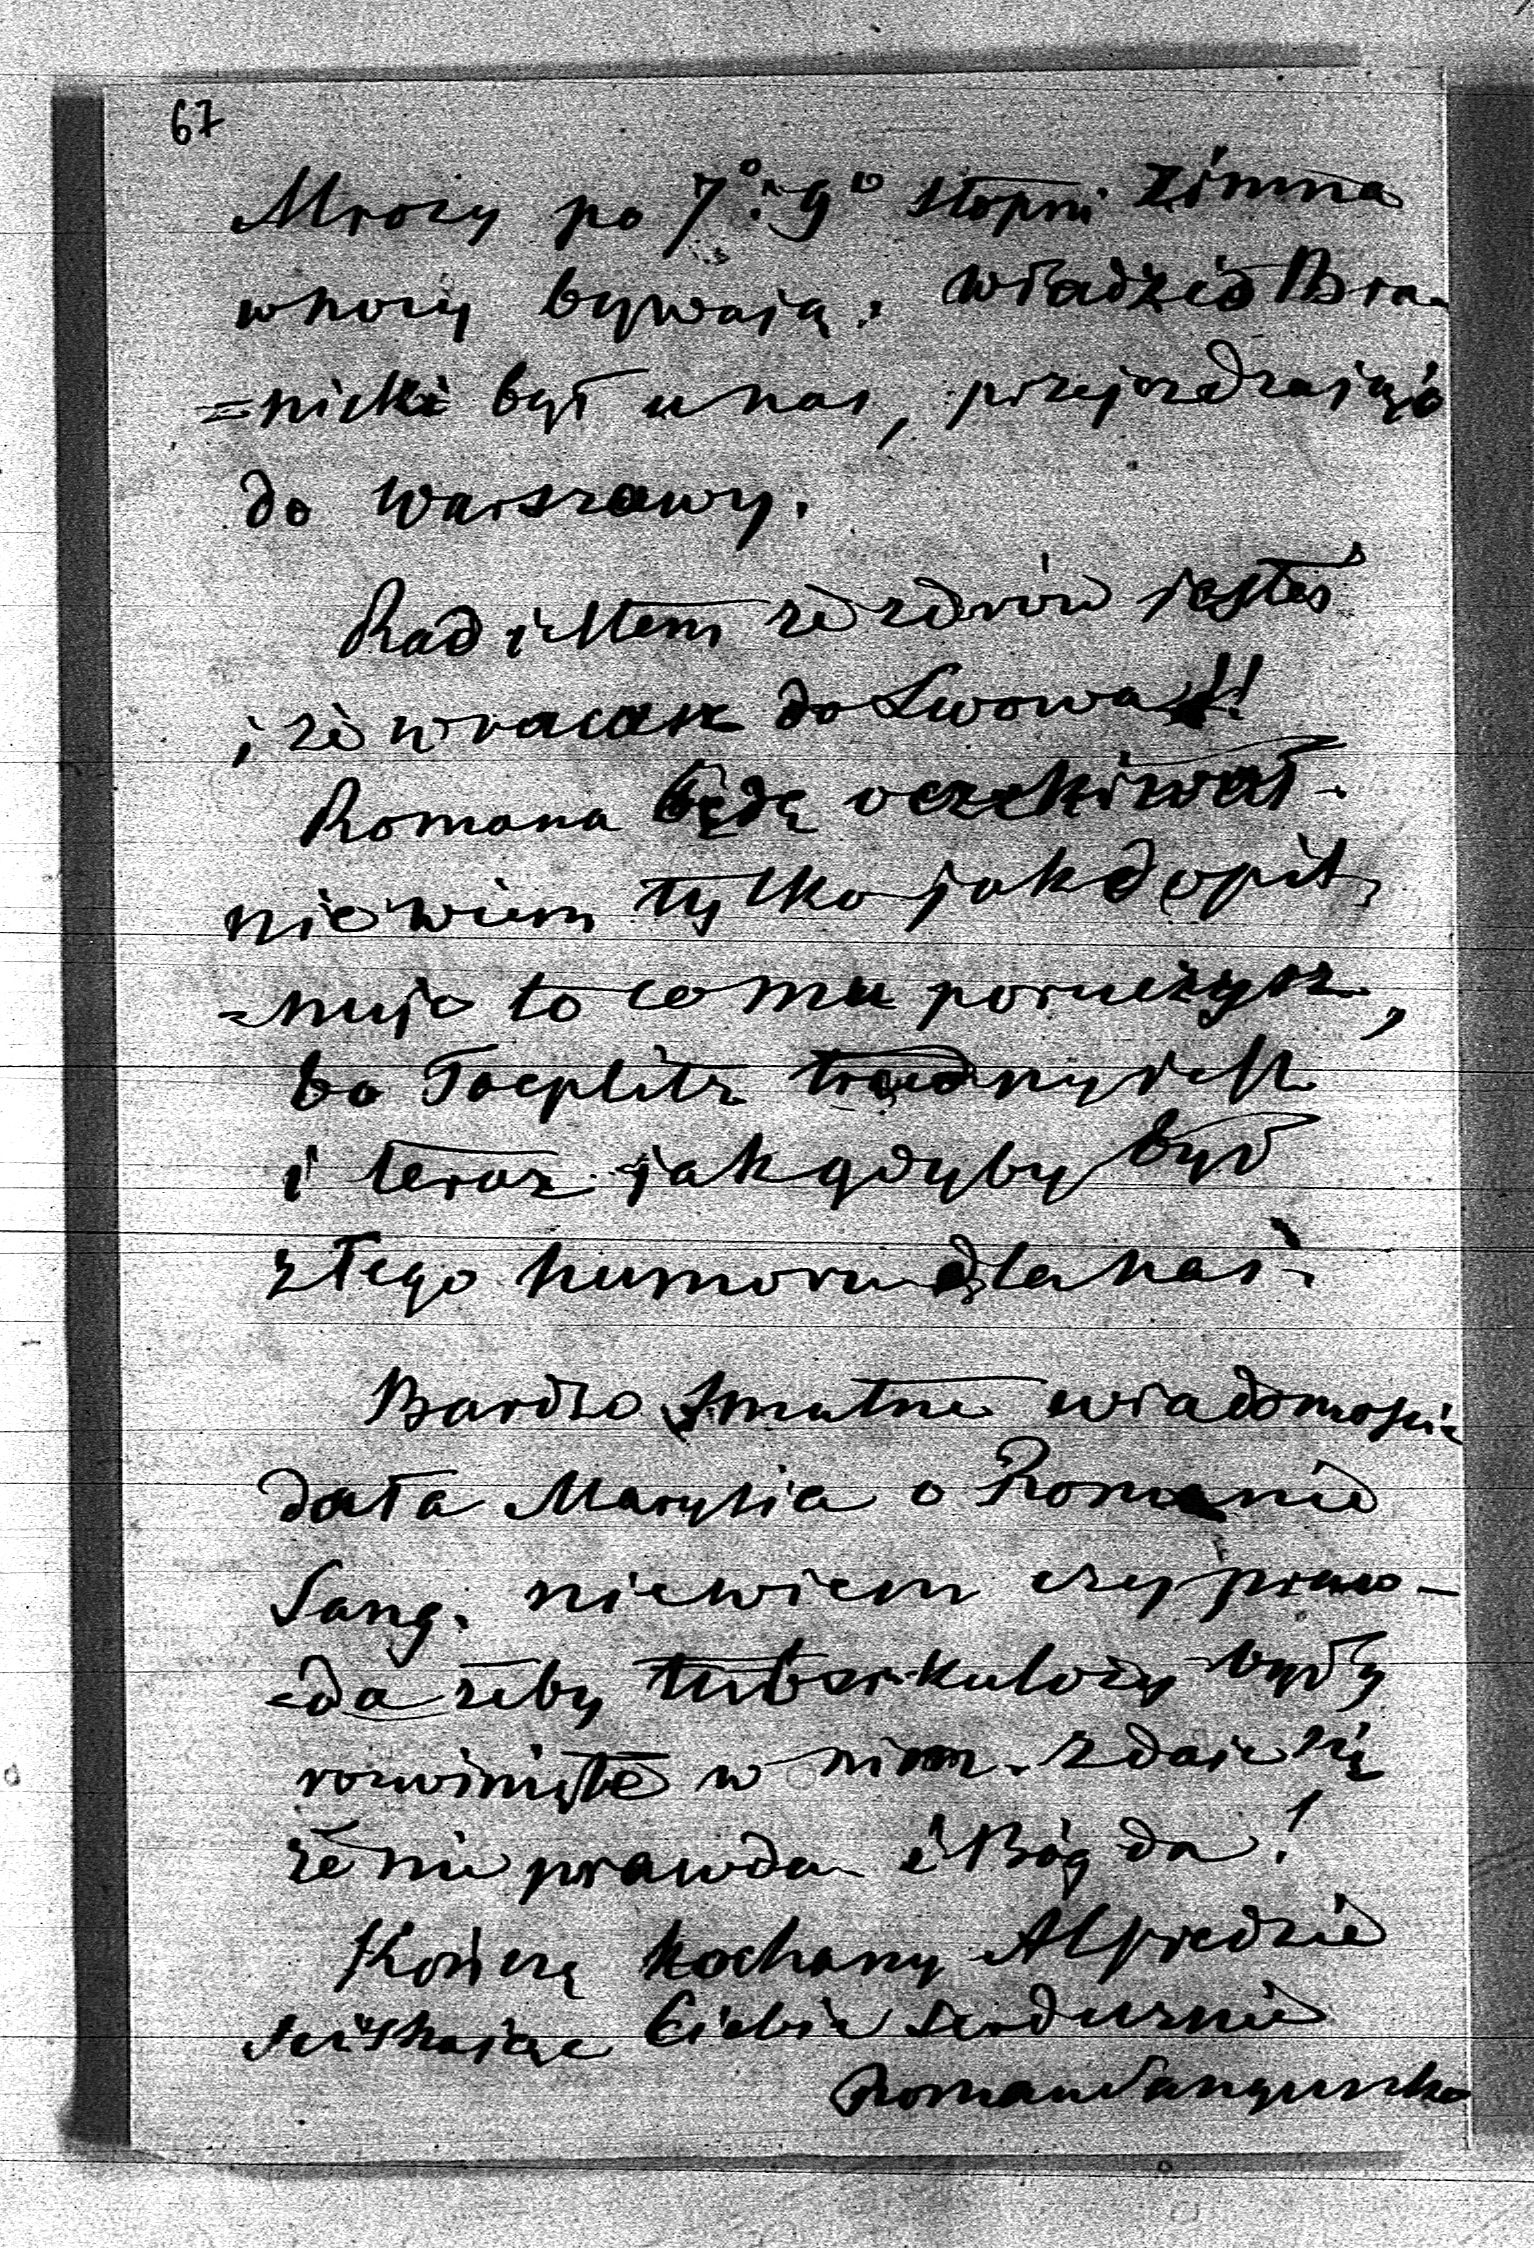 67
Mrozy po 7° i 9° stopni zimna
w nocy bywają. Władzio Bra-
=nicki był u nas, przejeżdzając
do Warszawy.
Rad jestem że zdrów jesteś
i że wracasz do Lwowa!!
Romana będę oczekiwał.
nie wiem tylko jak dopil,
=nuje to co mu poruczysz,
bo Toeplitz trudny jest
i teraz jak gdyby był
złego humoru dla nas.
Bardzo smutne wiadomoście
dała Marysia o Romanie
Sang. nie wiem czy praw-
=da żeby tuberkulozy były
rozwinięte w nim. zdaie się
że nie prawda i Bóg da!
Kończę kochany Alfredzie
sciskaiąc Ciebie serdecznie
Roman Sanguszko